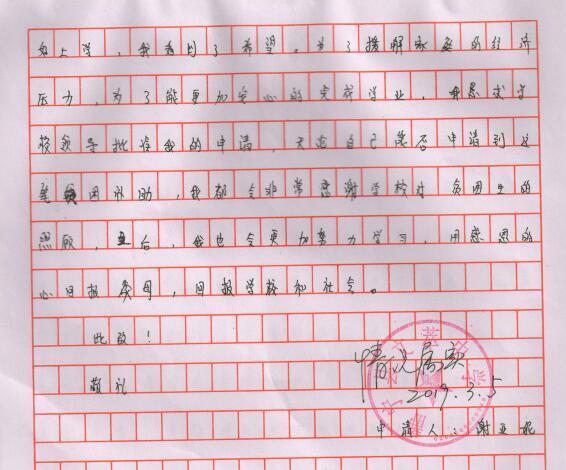 自上学，我看到了希望。为了缓解家庭的经济
压力，为了能更加安心的完成学业，我恳求学
校领导批准我的申请，无论自己能否申请到这
笔困补助，我都会非常感谢学校对贫困生的
照顾，最后，我也会更加努力学习，用感恩的
心回报父母，回报学校和社会。
此致！
敬礼
情况属实
2019.3.5
申请人：谢亚妮